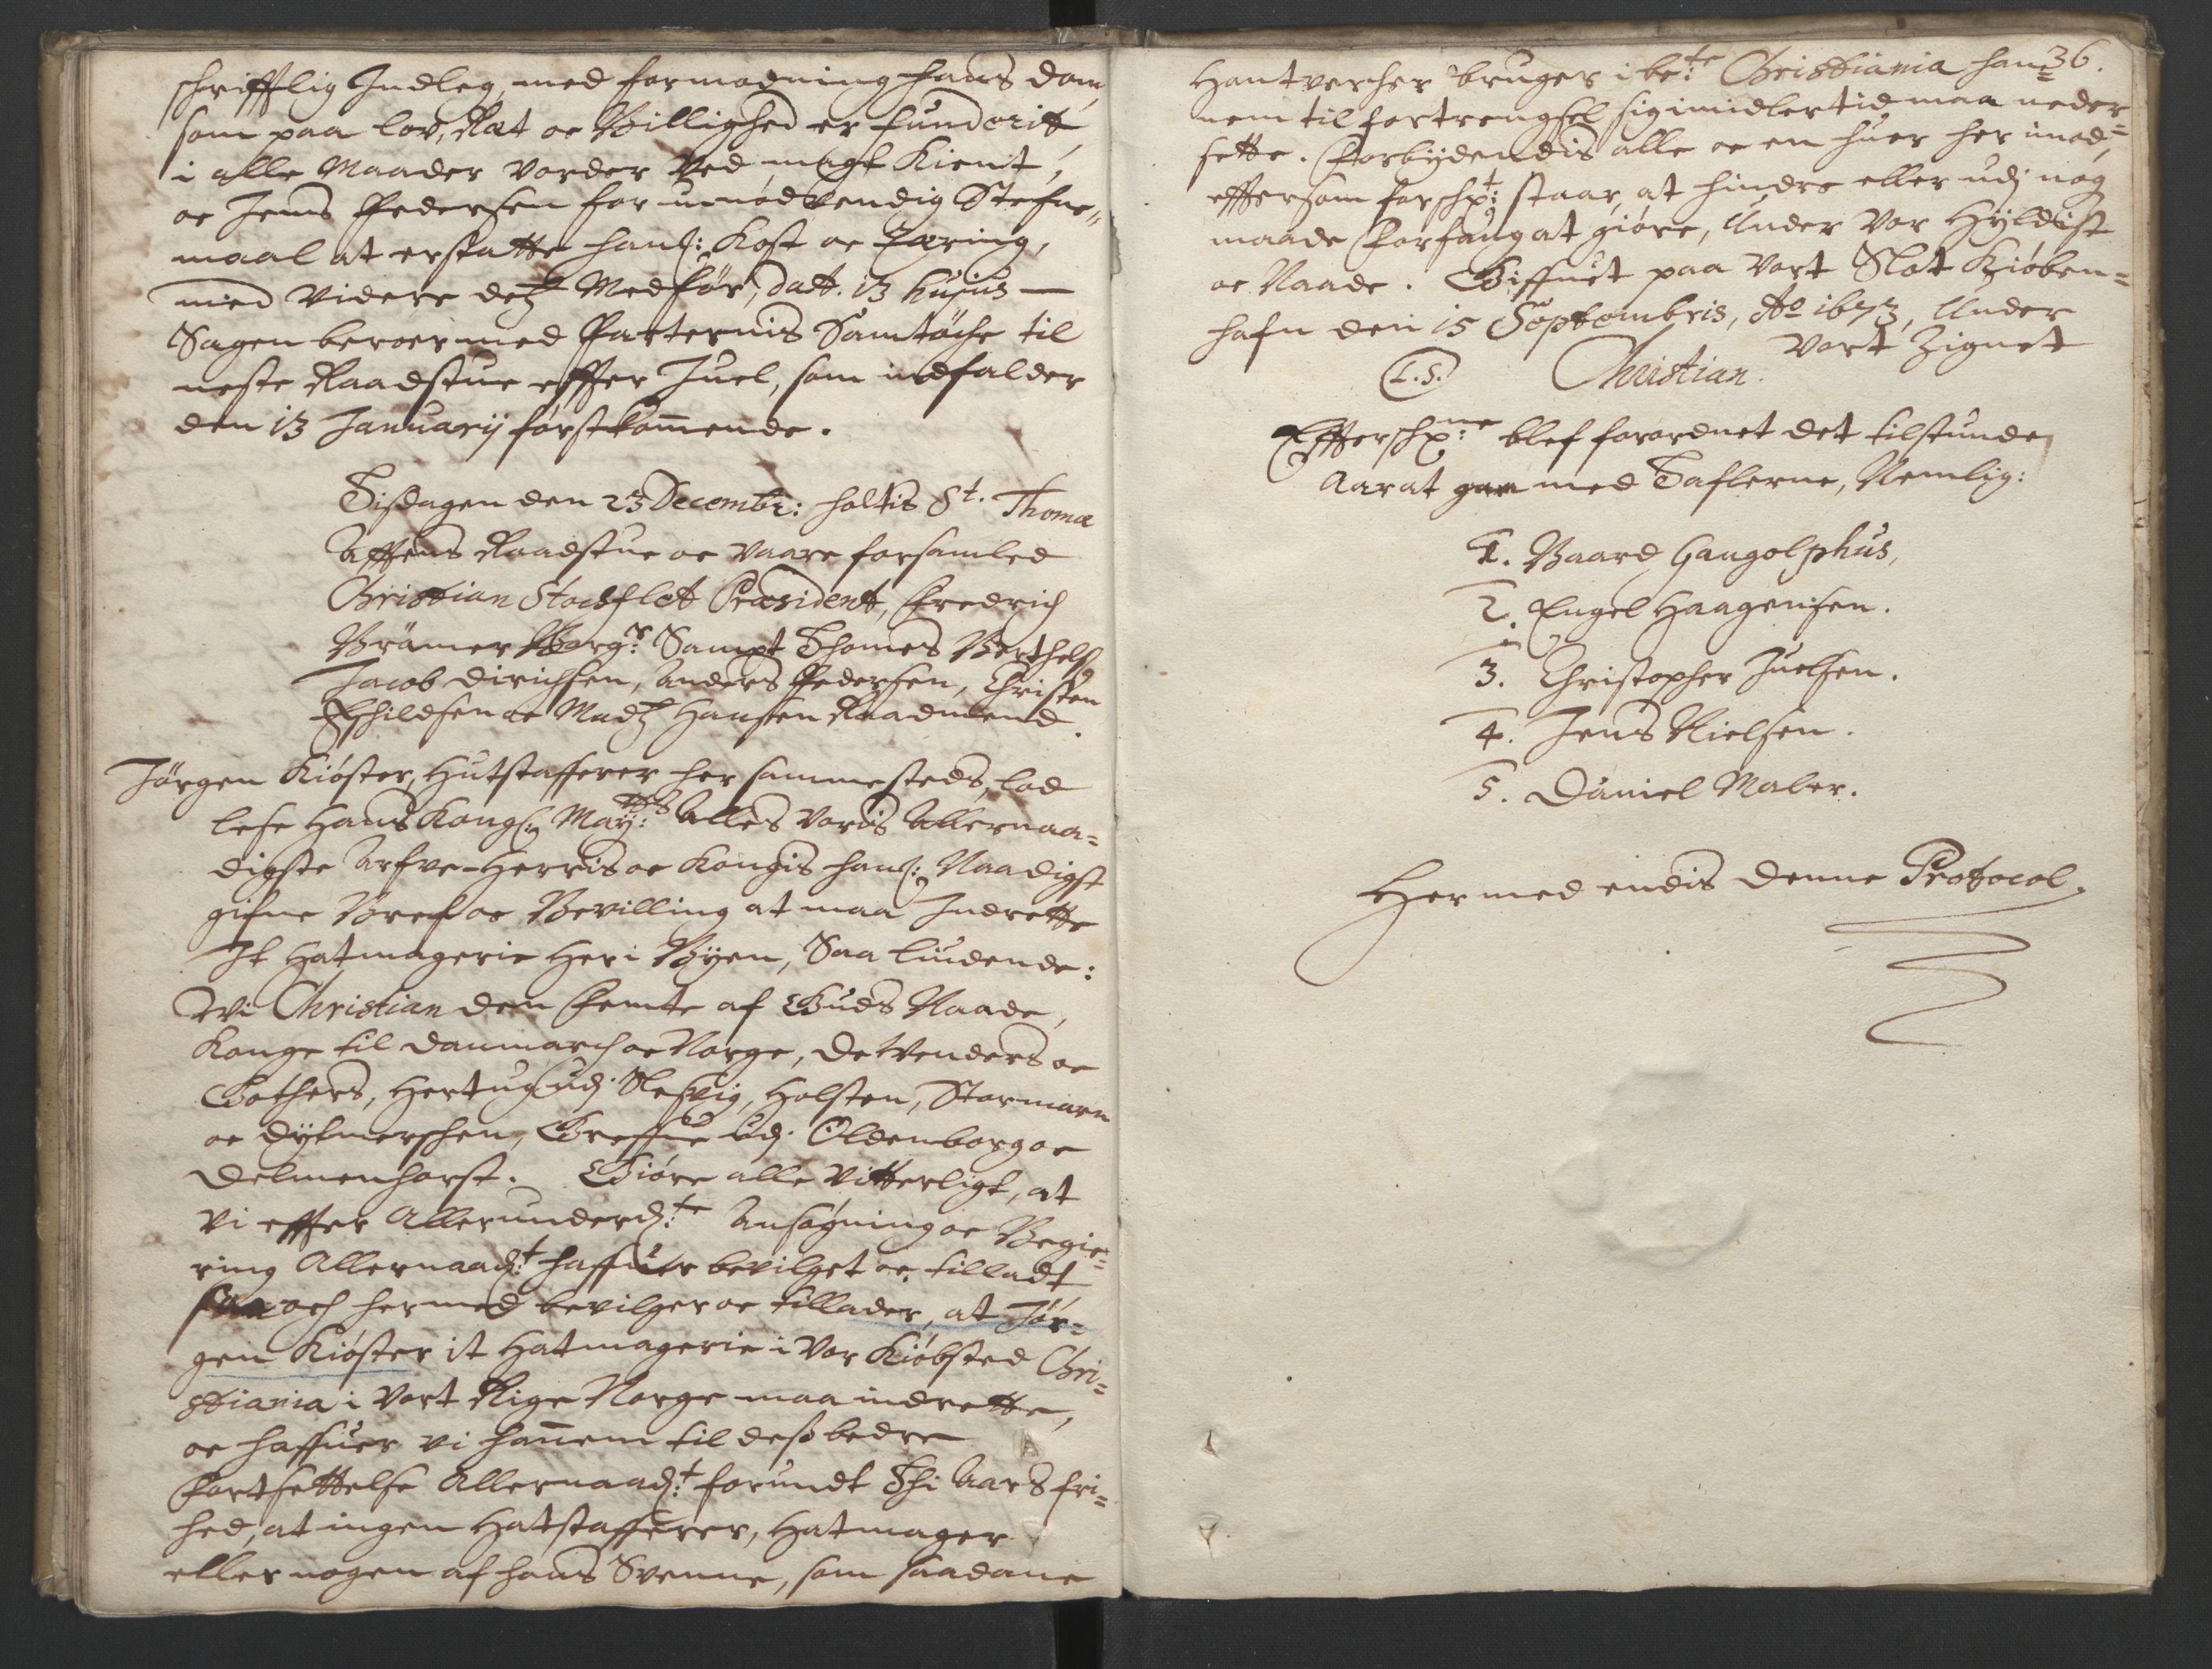 schrifftlig Indleg, med formodning hans dom,
som paa lov, Ræt oc Billighed er funderit,
i alle Maader vorder ved magt Kient,
oc Jens Pedersen for unødvendig Stefne-
maal at erstatte hanß: Kost oc Tæring,
med videre deß Medfør, datt. 13 hujus —
Sagen beroer med Parternis Samtøche til
neste Raadstue effter Juel, som indfalder
den 13 Januarij førstkommende.
Tisdagen den 23 Decembr: holtis St. Thomæ
Afftens Raadstue oc vaare forsamled
Christian Stockflet Præsident, Fredrich
Brämer Borgr: Sampt Thomes Berthels:
Jacob Dirichsen, Anders Pedersen, Christen
Eschildsen oc Madß Hansen Raadmend.
Jörgen Kiöster, Hutstafferer her sammesteds, lod
lese Hans Kongl: Mayts: Alles voris Allernaa-
digste Arfve-Herris oc Kongis hanß: Naadigst
gifne Bref oc Bevilling at maa Indrette
It Hatmagerie her i Byen, Saa liudende:
Wi Christian den Femte af Guds Naade,
Konge til Danmarch oc Norge, de Wenders oc
Gothers, Hertug udj Slesvig, Holsten, Stormarn
oc Dytmerschen, Greffue udj Oldenborg oc
Delmenhorst. Giöre alle vitterligt, at
vi effter Allerunderdte: Ansøgning oc Begie-
ring Allernaadt: haffuer bevilget oc tilladt,
saa och hermed bevilger oc tillader, at Jör-
gen Kiöster it Hatmagerie i vor Kiöbsted Chri-
stiania i vort Rige Norge maa indrette,
oc haffuer vi hannem til deß bedre
Fortsettelse Allernaadt: forundt Thi Aars fri-
hed, at ingen Hatstafferer, Hatmager
eller nogen af hans Svenne, som saadane
36.
Hantvercher bruger i bete: Christiania han-
nem til fortrengsel sig imidlertid maa neder-
sette. Forbydendis alle oc en huer her imod,
effter som forschft: staar, at hindre eller udj nog
maade Forfang at giöre, Under vor Hyldist
oc Naade. Giffuet paa vort Slot Kiöben-
hafn den 15 Septembris, Ao 1673, Under
vort Zignet
L.S. Christian.
Effterschrne: blef forordnet det tilstunde
Aar at gaa med Taflerne, Nemlig:
1. Baard Gangolphus,
2. Engel Haagensen.
3. Christopher Juelsen.
4. Jens Nielsen.
5. Daniel Maler.
Hermed endis denne Protocol.